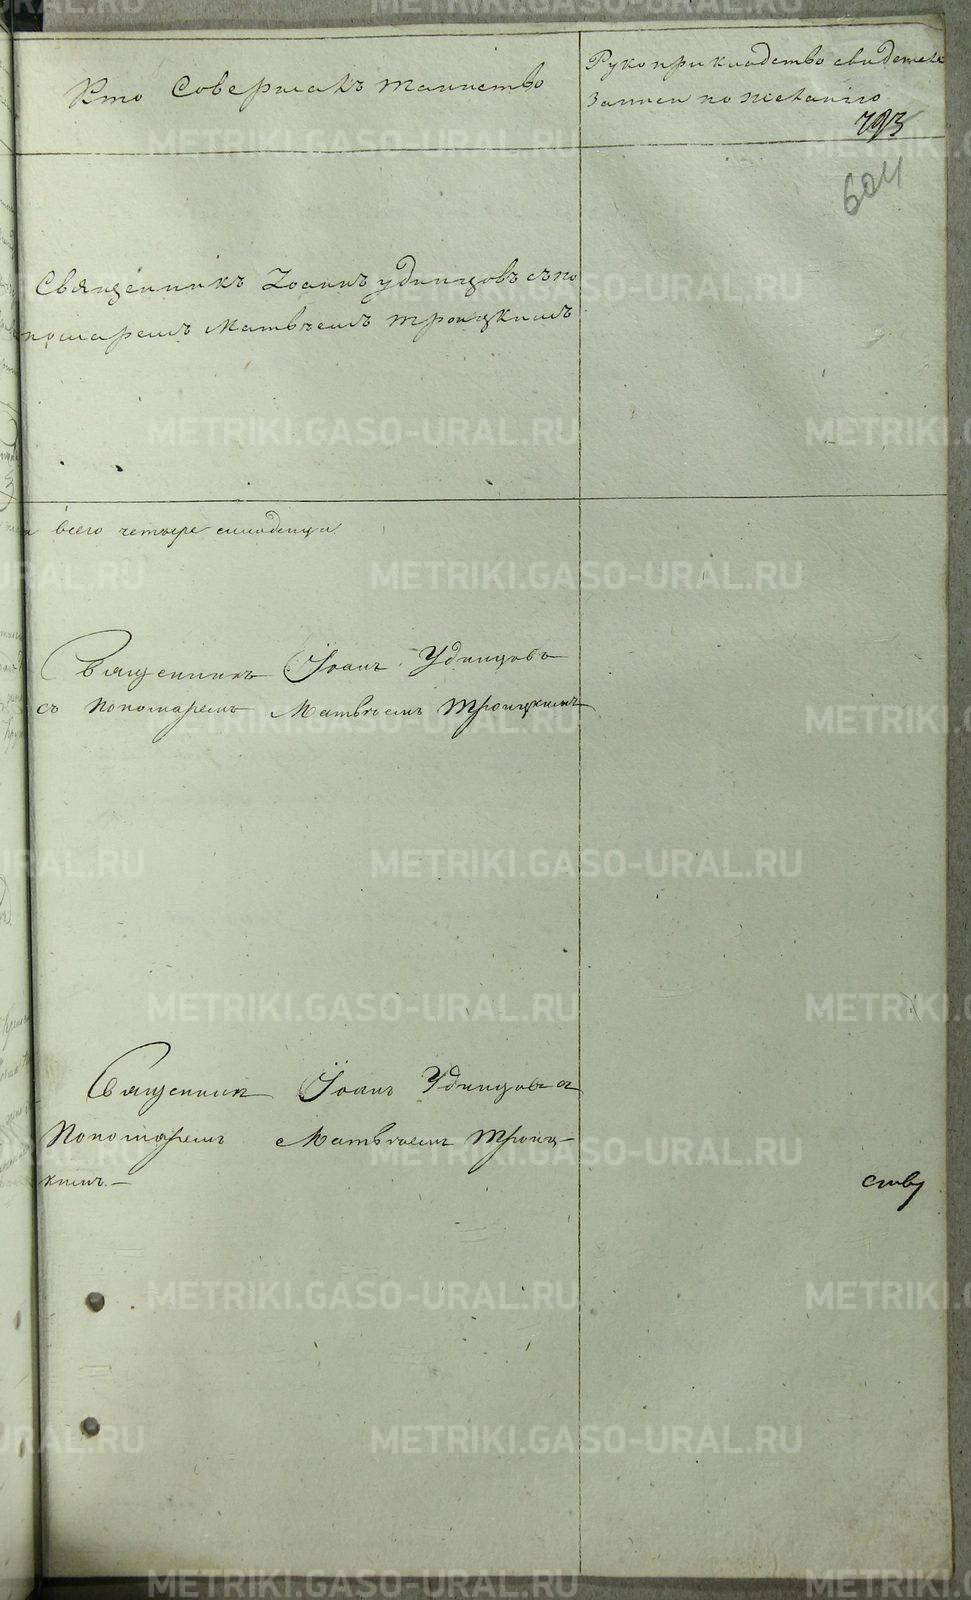 Кто Совершалъ таинство
Рукоприкладство свидетеле
Записи по желанію
793
604
Священникъ Іоаннъ удинцовъ съпо
номаремъ Матвѣемъ троицкимъ
всего четыре младенца
Священникъ Іоаннъ Удинцовъ
съ Пономаремъ Матвѣемъ Троицкимъ
Священникъ Іоаннъ Удинцовъ с
Пономаремъ Матвѣемъ Троиц-
кимъ. –
ству
METRIKI.GASO-URAL.RU